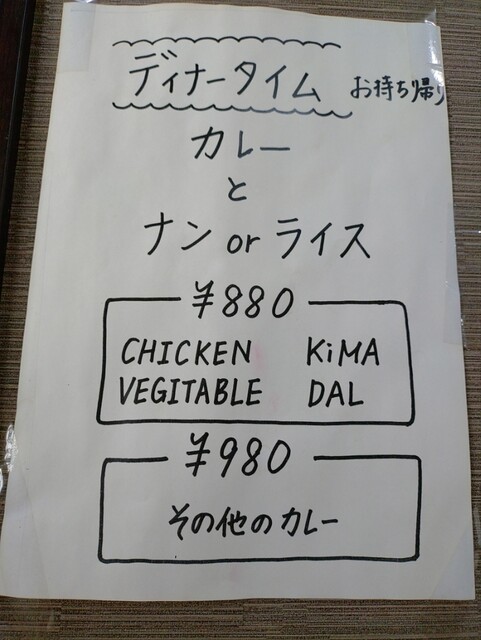 ディナータイム お持ち帰り
カレー
と
ナン or ライス
¥880
CHICKEN KiMA
VEGITABLE DAL
¥980
その他のカレー